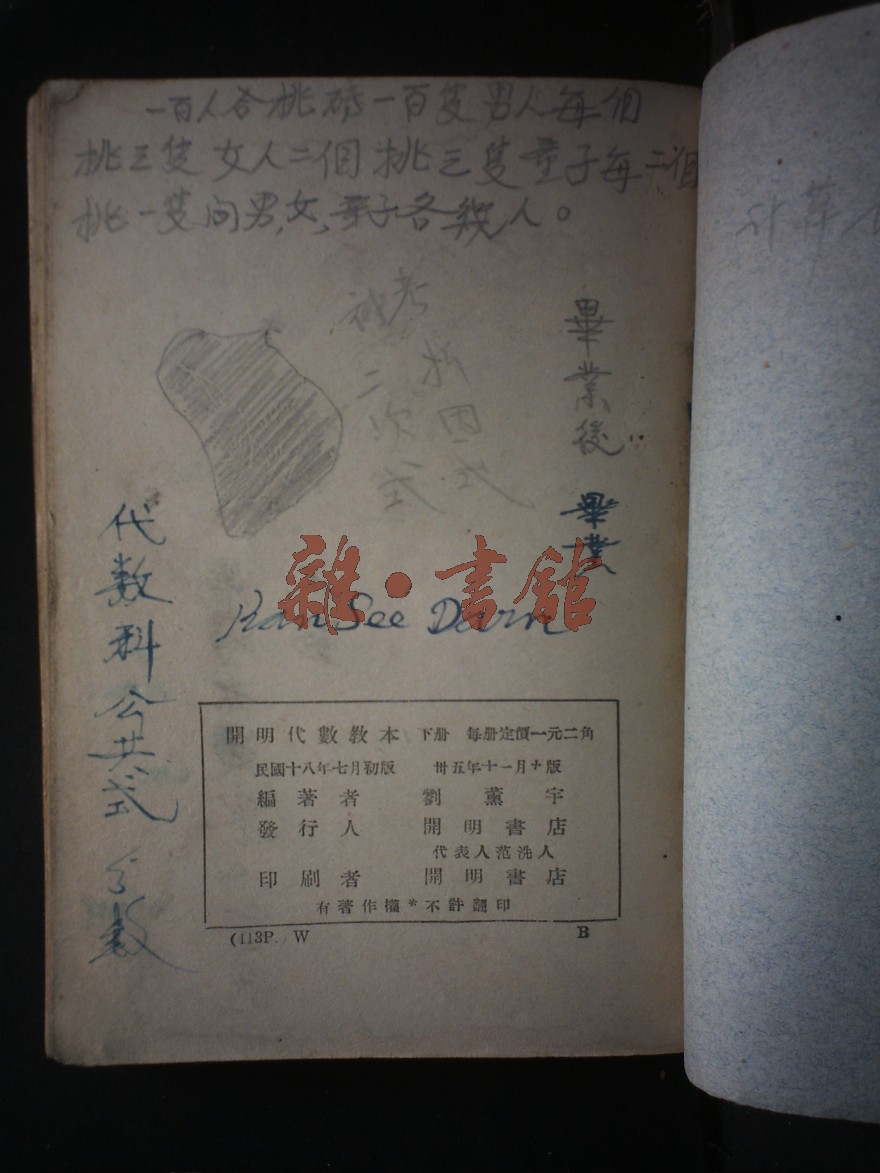 一百人合挑磚一百隻男人每個
挑三隻女人二個挑三隻童子每二個
挑一隻问男,女,童子各幾人。
計算
畢業後
畢業
二次式
折因式
代数科公共式
雜·書館
See
開明代數教本 下册 每册定價一元二角
民國十八年七月初版 卅五年十一月廿版
編著者 劉薰宇
發行人 開明書店
代表人范洗人
印刷者 開明書店
有著作權*不許翻印
(113P.) W B